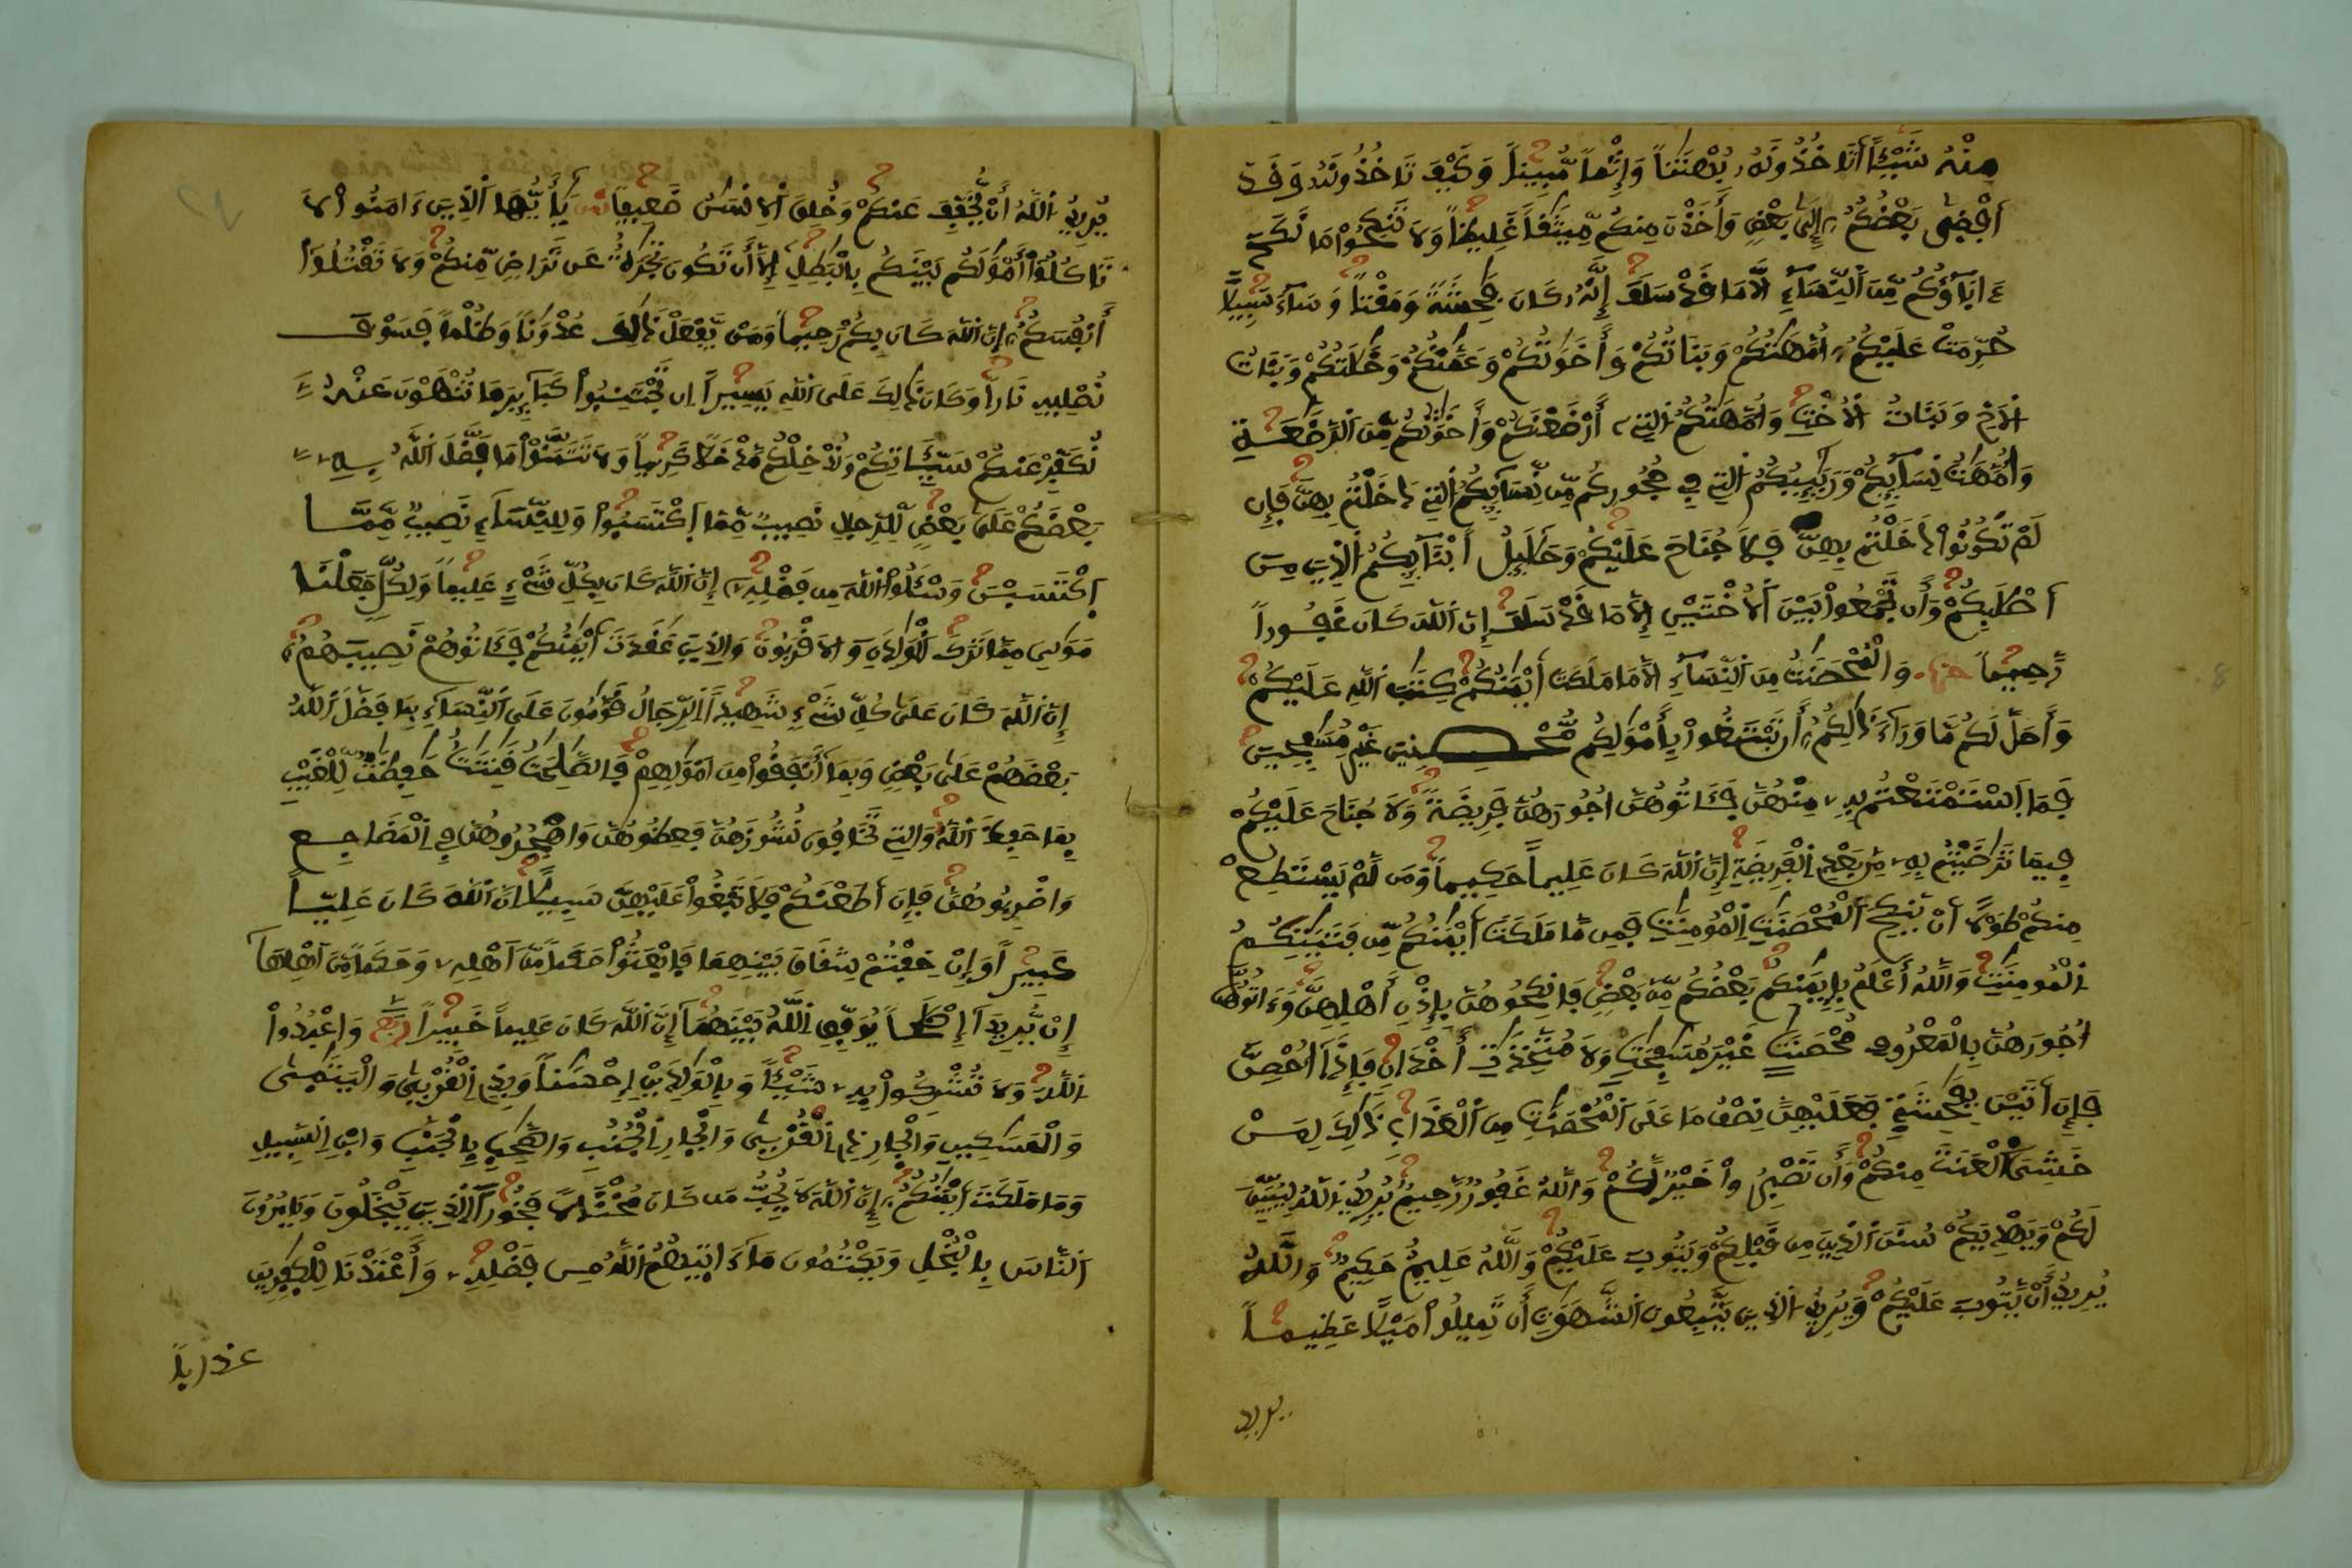 مِنْهُ شَيْـًٔا اَتَاخُذُونَهُۥ بُهْتَٰناً وَإِثْماً مُّبِيناً وَكَيْفَ تَاخُذُونَهُۥ وَقَدَ
اَفْضۭيٰ بَعْضُكُمُۥٓ إِلَيٰ بَعْضٖ وَأَخَذْنَ مِنكُم مِّيثَٰقاً غَلِيظاً وَلَا تَنكِحُواْ مَا نَكَحَ
ءَابَآؤُكُم مِّنَ اَلنِّسَآءِ اِلَّا مَا قَدْ سَلَفَ إِنَّهُۥ كَانَ فَٰحِشَةً وَمَقْتاً وَسَآءَ سَبِيلًا
حُرِّمَتْ عَلَيْكُمُۥٓ أُمَّهَٰتُكُمْ وَبَنَاتُكُمْ وَأَخَوَٰتُكُمْ وَعَمَّٰتُكُمْ وَخَٰلَٰتُكُمْ وَبَنَاتُ
اُلَاخِ وَبَنَاتُ اُلُاخْتِ وَأُمَّهَٰتُكُمُ اُلتِےٓ أَرْضَعْنَكُمْ وَأَخَوَٰتُكُم مِّنَ اَلرَّضَٰعَةِ
وَأُمَّهَٰتُ نِسَآئِكُمْ وَرَبَٰٓئِبُكُمُ اُلتِے فِے حُجُورِكُم مِّن نِّسَآئِكُمُ اُلتِے دَخَلْتُم بِهِنَّ فَإِن
لَّمْ تَكُونُواْ دَخَلْتُم بِهِنَّ فَلَا جُنَاحَ عَلَيْكُمْ وَحَلَٰٓئِلُ أَبْنَآئِكُمُ اُلذِينَ مِنَ
اَصْلَٰبِكُمْ وَأَن تَجْمَعُواْ بَيْنَ اَلُاخْتَيْنِ إِلَّا مَا قَدْ سَلَفَ إِنَّ اَللَّهَ كَانَ غَفُوراً
رَّحِيماً وَالْمُحْصَنَٰتُ مِنَ اَلنِّسَآءِ اِلَّا مَا مَلَكَتَ اَيْمَٰنُكُمْ كِتَٰبَ اَللَّهِ عَلَيْكُمْ
وَأَحَلَّ لَكُم مَّا وَرَآءَ ذَٰلِكُمُۥٓ أَن تَبْتَغُواْ بِأَمْوَٰلِكُم مُّحْصِنِينَ غَيْرَ مُسَٰفِحِينَ
فَمَا اَسْتَمْتَعْتُم بِهِۦ مِنْهُنَّ فَـَٔاتُوهُنَّ أُجُورَهُنَّ فَرِيضَةً وَلَا جُنَاحَ عَلَيْكُمْ
فِيمَا تَرَٰضَيْتُم بِهِۦ مِنۢ بَعْدِ اِلْفَرِيضَةِ إِنَّ اَللَّهَ كَانَ عَلِيماً حَكِيماً وَمَن لَّمْ يَسْتَطِعْ
مِنكُمْ طَوْلًا اَنْ يَّنكِحَ اَلْمُحْصَنَٰتِ اِلْمُومِنَٰتِ فَمِن مَّا مَلَكَتَ اَيْمَٰنُكُم مِّن فَتَيَٰتِكُمُ
اُلْمُومِنَٰتِ وَاللَّهُ أَعْلَمُ بِإِيمَٰنِكُم بَعْضُكُم مِّنۢ بَعْضٖ فَانكِحُوهُنَّ بِإِذْنِ أَهْلِهِنَّ وَءَاتُوهُنَّ
أُجُورَهُنَّ بِالْمَعْرُوفِ مُحْصَنَٰتٍ غَيْرَ مُسَٰفِحَٰتٖ وَلَا مُتَّخِذَٰتِ أَخْدَانٖ فَإِذَآ أُحْصِنَّ
فَإِنَ اَتَيْنَ بِفَٰحِشَةٖ فَعَلَيْهِنَّ نِصْفُ مَا عَلَى اَلْمُحْصَنَٰتِ مِنَ اَلْعَذَابِ ذَٰلِكَ لِمَنْ
خَشِيَ اَلْعَنَتَ مِنكُمْ وَأَن تَصْبِرُواْ خَيْرٌ لَّكُمْ وَاللَّهُ غَفُورٌ رَّحِيمٌ يُرِيدُ اُللَّهُ لِيُبَيِّنَ
لَكُمْ وَيَهْدِيَكُمْ سُنَنَ اَلذِينَ مِن قَبْلِكُمْ وَيَتُوبَ عَلَيْكُمْ وَاللَّهُ عَلِيمٌ حَكِيمٌ وَاللَّهُ
يُرِيدُ أَنْ يَّتُوبَ عَلَيْكُمْ وَيُرِيدُ اُلذِينَ يَتَّبِعُونَ اَلشَّهَوَٰتِ أَن تَمِيلُواْ مَيْلًا عَظِيماً
يريد
يُرِيدُ اُللَّهُ أَنْ يُّخَفِّفَ عَنكُمْ وَخُلِقَ اَلِانسَٰنُ ضَعِيفاً يَٰٓأَيُّهَا اَلذِينَ ءَامَنُواْ لَا
تَاكُلُوٓاْ أَمْوَٰلَكُم بَيْنَكُم بِالْبَٰطِلِ إِلَّآ أَن تَكُونَ تِجَٰرَةٌ عَن تَرَاضٖ مِّنكُمْ وَلَا تَقْتُلُوٓاْ
أَنفُسَكُمُۥٓ إِنَّ اَللَّهَ كَانَ بِكُمْ رَحِيماً وَمَنْ يَّفْعَلْ ذَٰلِكَ عُدْوَٰناً وَظُلْماً فَسَوْفَ
نُصْلِيهِ نَاراً وَكَانَ ذَٰلِكَ عَلَى اَللَّهِ يَسِيراً اِن تَجْتَنِبُواْ كَبَآئِرَ مَا تُنْهَوْنَ عَنْهُ
نُكَفِّرْ عَنكُمْ سَيِّـَٔاتِكُمْ وَنُدْخِلْكُم مَّدْخَلًا كَرِيماً وَلَا تَتَمَنَّوْاْ مَا فَضَّلَ اَللَّهُ بِهِۦ
بَعْضَكُمْ عَلَيٰ بَعْضٖ لِّلرِّجَالِ نَصِيبٌ مِّمَّا اَكْتَسَبُواْ وَلِلنِّسَآءِ نَصِيبٌ مِّمَّا
اَكْتَسَبْنَ وَسْـَٔلُواْ اُللَّهَ مِن فَضْلِهِۦٓ إِنَّ اَللَّهَ كَانَ بِكُلِّ شَےْءٍ عَلِيماً وَلِكُلّٖ جَعَلْنَا
مَوَٰلِيَ مِمَّا تَرَكَ اَلْوَٰلِدَٰنِ وَالَاقْرَبُونَ وَالذِينَ عَٰقَدَتَ اَيْمَٰنُكُمْ فَـَٔاتُوهُمْ نَصِيبَهُمُۥٓ
إِنَّ اَللَّهَ كَانَ عَلَيٰ كُلِّ شَےْءٖ شَهِيداً اَلرِّجَالُ قَوَّٰمُونَ عَلَى اَلنِّسَآءِ بِمَا فَضَّلَ اَللَّهُ
بَعْضَهُمْ عَلَيٰ بَعْضٖ وَبِمَآ أَنفَقُواْ مِنَ اَمْوَٰلِهِمْ فَالصَّٰلِحَٰتُ قَٰنِتَٰتٌ حَٰفِظَٰتٌ لِّلْغَيْبِ
بِمَا حَفِظَ اَللَّهُ وَالتِے تَخَافُونَ نُشُوزَهُنَّ فَعِظُوهُنَّ وَاهْجُرُوهُنَّ فِے اِلْمَضَاجِعِ
وَاضْرِبُوهُنَّ فَإِنَ اَطَعْنَكُمْ فَلَا تَبْغُواْ عَلَيْهِنَّ سَبِيلًا اِنَّ اَللَّهَ كَانَ عَلِيّاً
كَبِيراً وَإِنْ خِفْتُمْ شِقَاقَ بَيْنِهِمَا فَابْعَثُواْ حَكَماً مِّنَ اَهْلِهِۦ وَحَكَماً مِّنَ اَهْلِهَآ
إِنْ يُّرِيدَآ إِصْلَٰحاً يُوَفِّقِ اِللَّهُ بَيْنَهُمَآ إِنَّ اَللَّهَ كَانَ عَلِيماً خَبِيراً وَاعْبُدُواْ
اُللَّهَ وَلَا تُشْرِكُواْ بِهِۦ شَيْـٔاً وَبِالْوَٰلِدَيْنِ إِحْسَٰناً وَبِذِے اِلْقُرْبۭيٰ وَالْيَتَٰمۭيٰ
وَالْمَسَٰكِينِ وَالْجارِ ذِے اِلْقُرْبۭيٰ وَالْجارِ اِلْجُنُبِ وَالصَّاحِبِ بِالْجَنۢبِ وَابْنِ اِلسَّبِيلِ
وَمَا مَلَكَتَ اَيْمَٰنُكُمُۥٓ إِنَّ اَللَّهَ لَا يُحِبُّ مَن كَانَ مُخْتَالًا فَخُوراً اَلذِينَ يَبْخَلُونَ وَيَامُرُونَ
اَلنَّاسَ بِالْبُخْلِ وَيَكْتُمُونَ مَآ ءَاتَيٰهُمُ اُللَّهُ مِن فَضْلِهِۦ وَأَعْتَدْنَا لِلْكٰفِرِينَ
عذابا